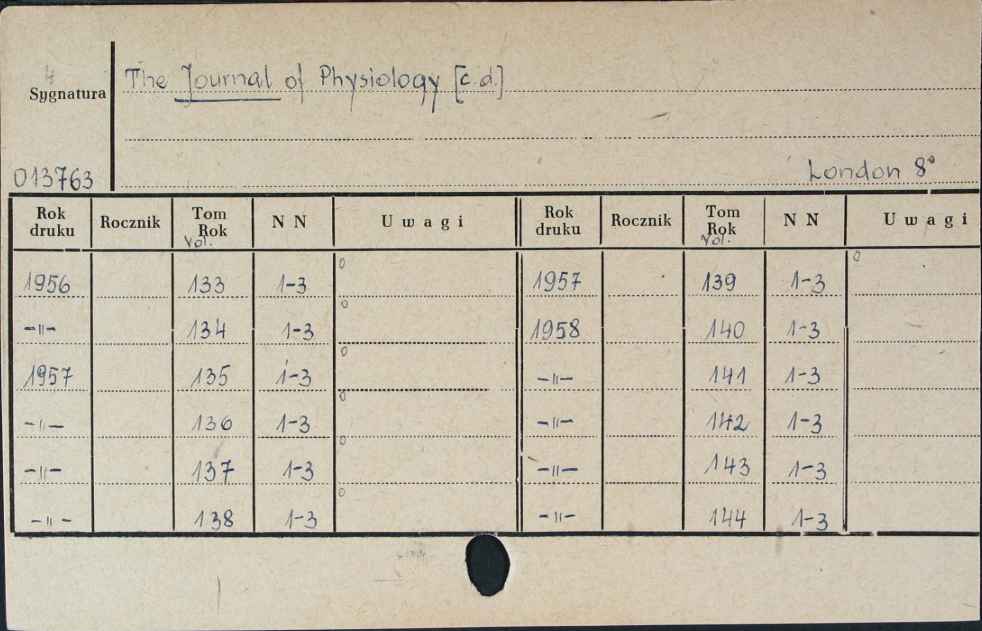 4
Sygnatura
The Journal of Physiology [c.d.]
013763
London 8°
Rok druku Rocznik Tom Rok Vol. N N Uwagi Rok druku Rocznik Tom Rok Vol. N N Uwagi
1956 133 1-3 0 1957 139 1-3 0
-"- 134 1-3 0 1958 140 1-3
1957 135 1-3 0 -"- 141 1-3
-"- 136 1-3 0 -"- 142 1-3
-"- 137 1-3 0 -"- 143 1-3
-"- 138 1-3 0 -"- 144 1-3